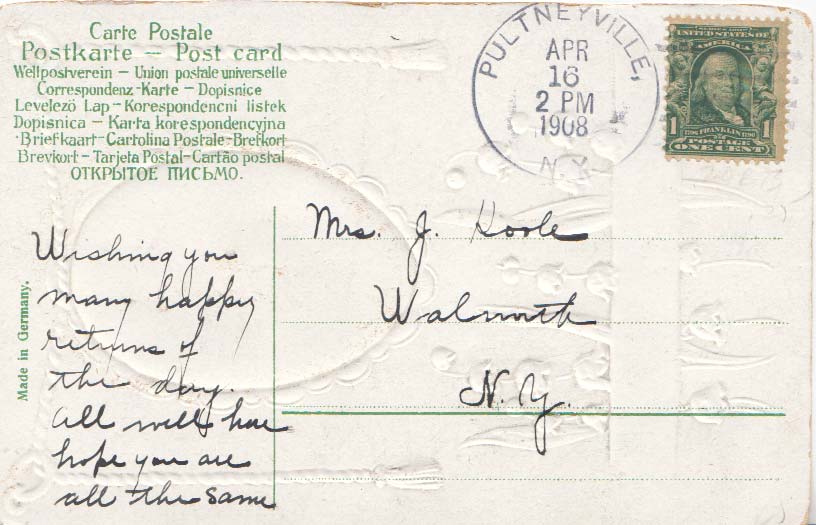 Carte Postale
Postkarte – Post card
Weltpostverein – Union postale universelle
Correspondenz-Karte – Dopisnice
Levelező Lap – Korespondencni listek
Dopisnica – Karta korespondencyjna
Briefkaart – Cartolina Postale – Brefkort
Brevkort – Tarjeta Postal – Cartão postal
ОТКРЫТОЕ ПИСЬМО.
PULTNEYVILLE,
APR
16
2 PM
1908
N.Y.
SERIES 1902
UNITED STATES OF
AMERICA
1706 FRANKLIN 1790
1 1
POSTAGE
ONE CENT
Mrs. J. Hoole
Walworth
N.Y.
Wishing you
many happy
returns of
the day.
All well here
hope you are
all the same
Made in Germany.